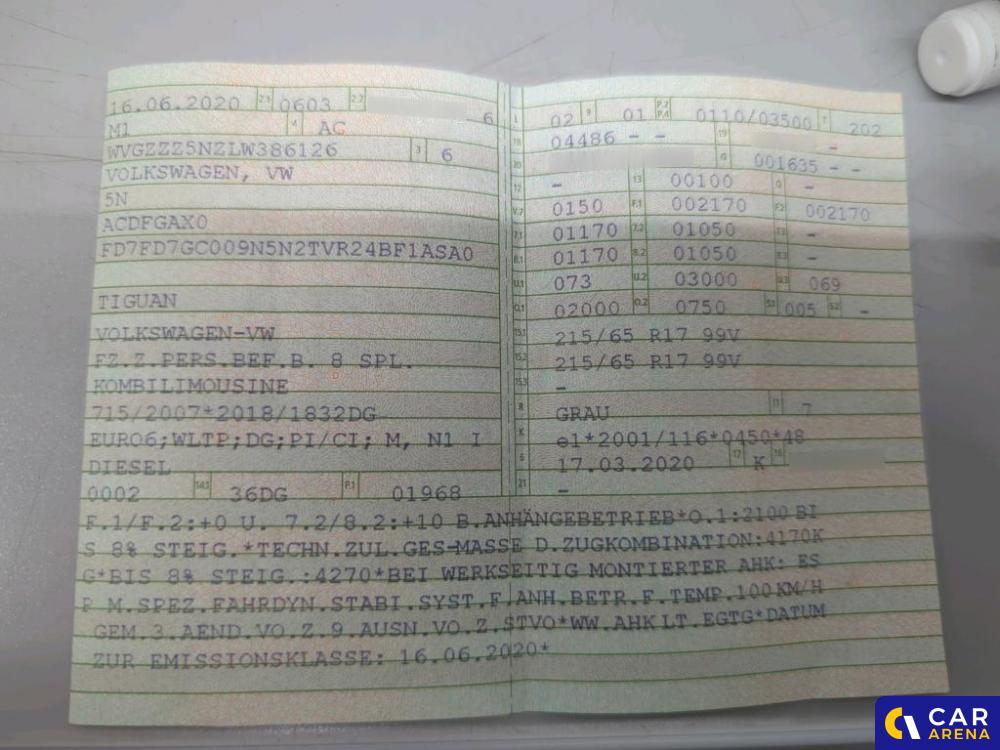 16.06.2020 2.1 0603 2.2 6
M1 4 AC
WVGZZZ5NZLW386126 3 6
VOLKSWAGEN, VW
5N
ACDFGAX0
FD7FD7GC009N5N2TVR24BF1ASA0
TIGUAN
VOLKSWAGEN-VW
FZ.Z.PERS.BEF.B. 8 SPL.
KOMBILIMOUSINE
715/2007*2018/1832DG
EURO6;WLTP;DG;PI/CI; M, N1 I
DIESEL
0002 14.1 36DG P.1 01968
L 02 9 01 P.2 P.4 0110/03500 T 202
18 04486 - - 19 -
20 G 001635 - -
12 - 13 00100 Q -
V.7 0150 F.1 002170 F.2 002170
7.1 01170 7.2 01050 7.3 -
8.1 01170 8.2 01050 8.3 -
U.1 073 U.2 03000 U.3 069
O.1 02000 O.2 0750 S.1 005 S.2 -
15.1 215/65 R17 99V
15.2 215/65 R17 99V
15.3 -
R GRAU 11 7
K e1*2001/116*0450*48
6 17.03.2020 17 K 16
21 -
F.1/F.2:+0 U. 7.2/8.2:+10 B.ANHÄNGEBETRIEB*O.1:2100 BI
S 8% STEIG.*TECHN.ZUL.GES-MASSE D.ZUGKOMBINATION:4170K
G*BIS 8% STEIG.:4270*BEI WERKSEITIG MONTIERTER AHK: ES
P M.SPEZ.FAHRDYN.STABI.SYST.F.ANH.BETR.F.TEMP.100 KM/H
GEM.3.AEND.VO.Z.9.AUSN.VO.Z.STVO*WW.AHK LT.EGTG*DATUM
ZUR EMISSIONSKLASSE: 16.06.2020*
CAR
ARENA